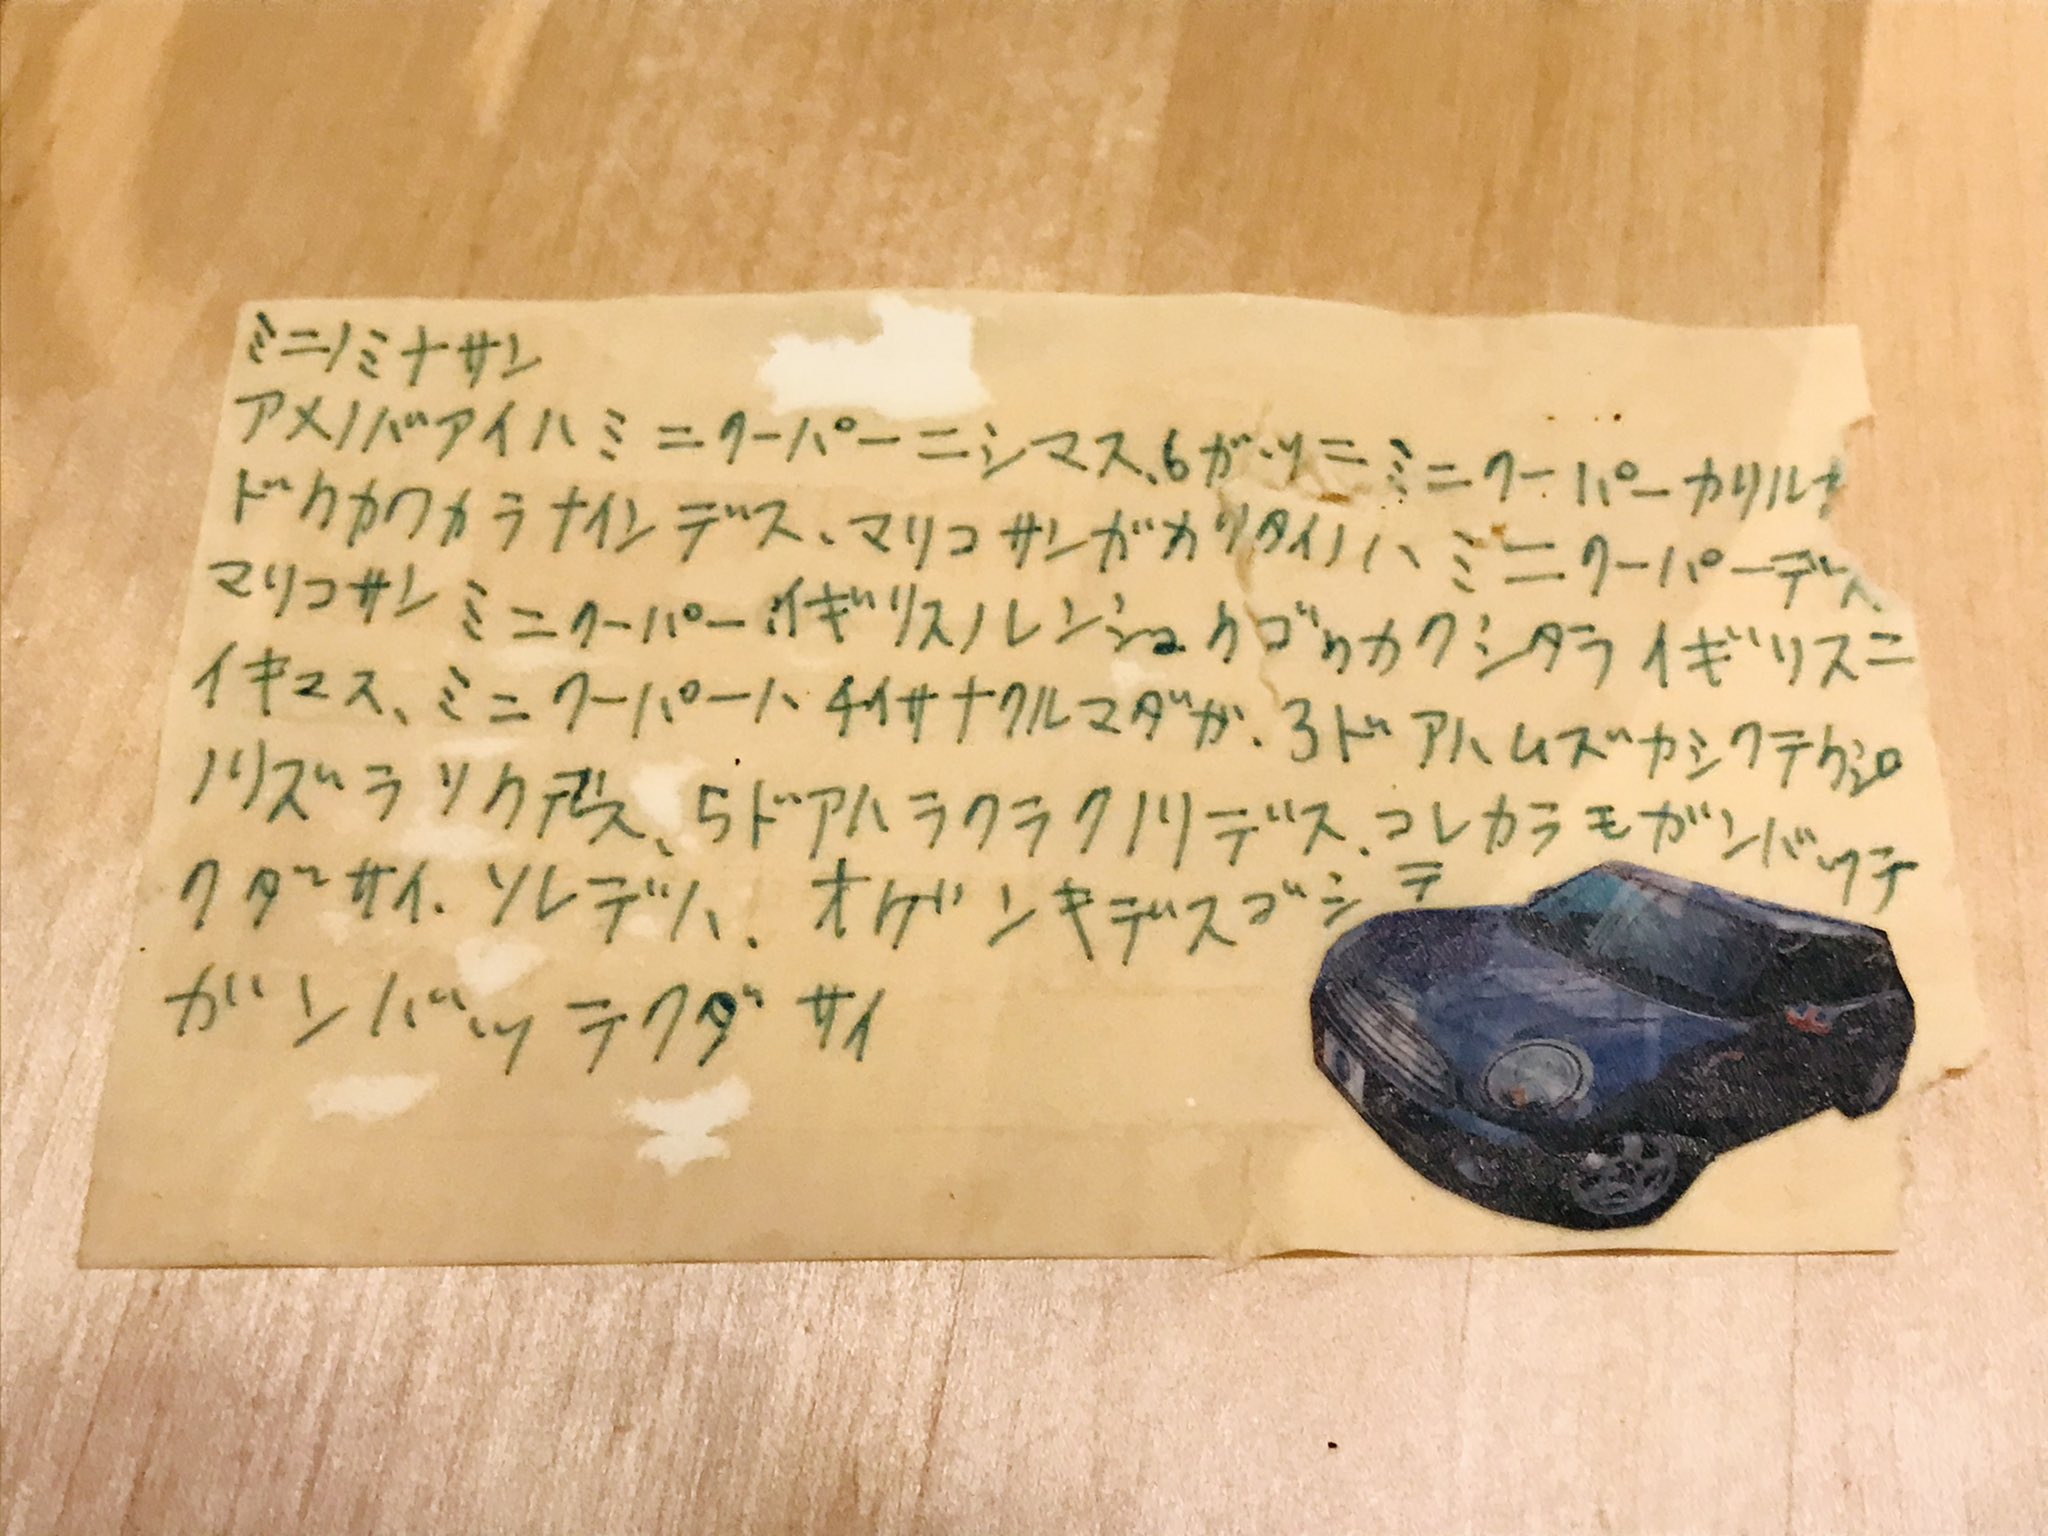 ミニノミナサン
アメノバアイハミニクーパーニシマス、6ガツニミニクーパーカリルナ
ドウカワカラナインデス、マリコサンガカリタイノハミニクーパーデス、
マリコサンミニクーパーイギリスノレンシュウゴウカクシタライギリスニ
イキマス、ミニクーパーハチイサナクルマダガ、3ドアハムズカシクテ
ノリズラソウデス、5ドアハラクラクノリデス、コレカラモガンバッテ
クダサイ、ソレデハ、オゲンキデスゴシテ
ガンバッテクダサイ